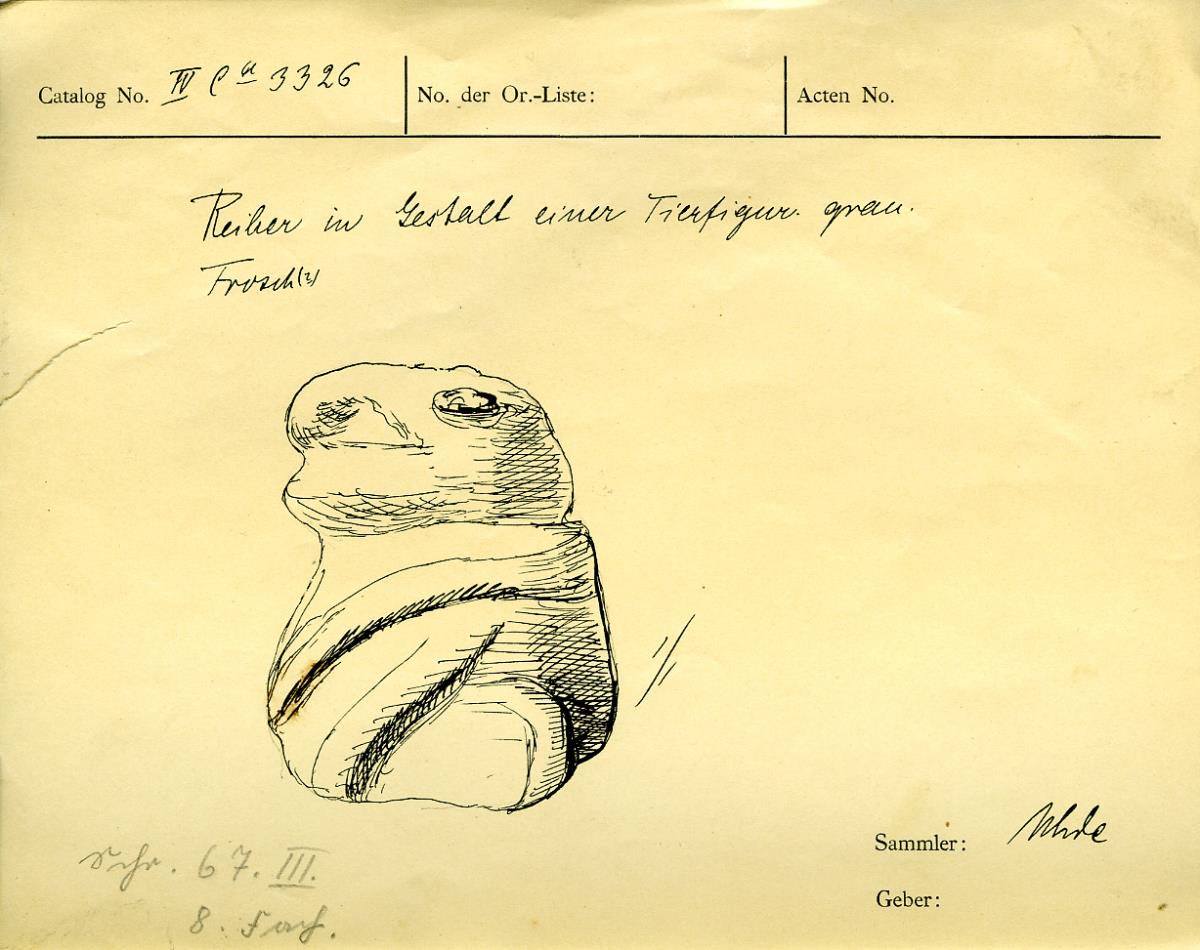 Catalog No. IV Ca 3326
No. der Or.-Liste:
Acten No.
Reiber in Gestalt einer Tierfigur. grau.
Frosch(?)
1/1
Sammler: Uhde
Geber:
Schr. 67. III.
8. Fach.